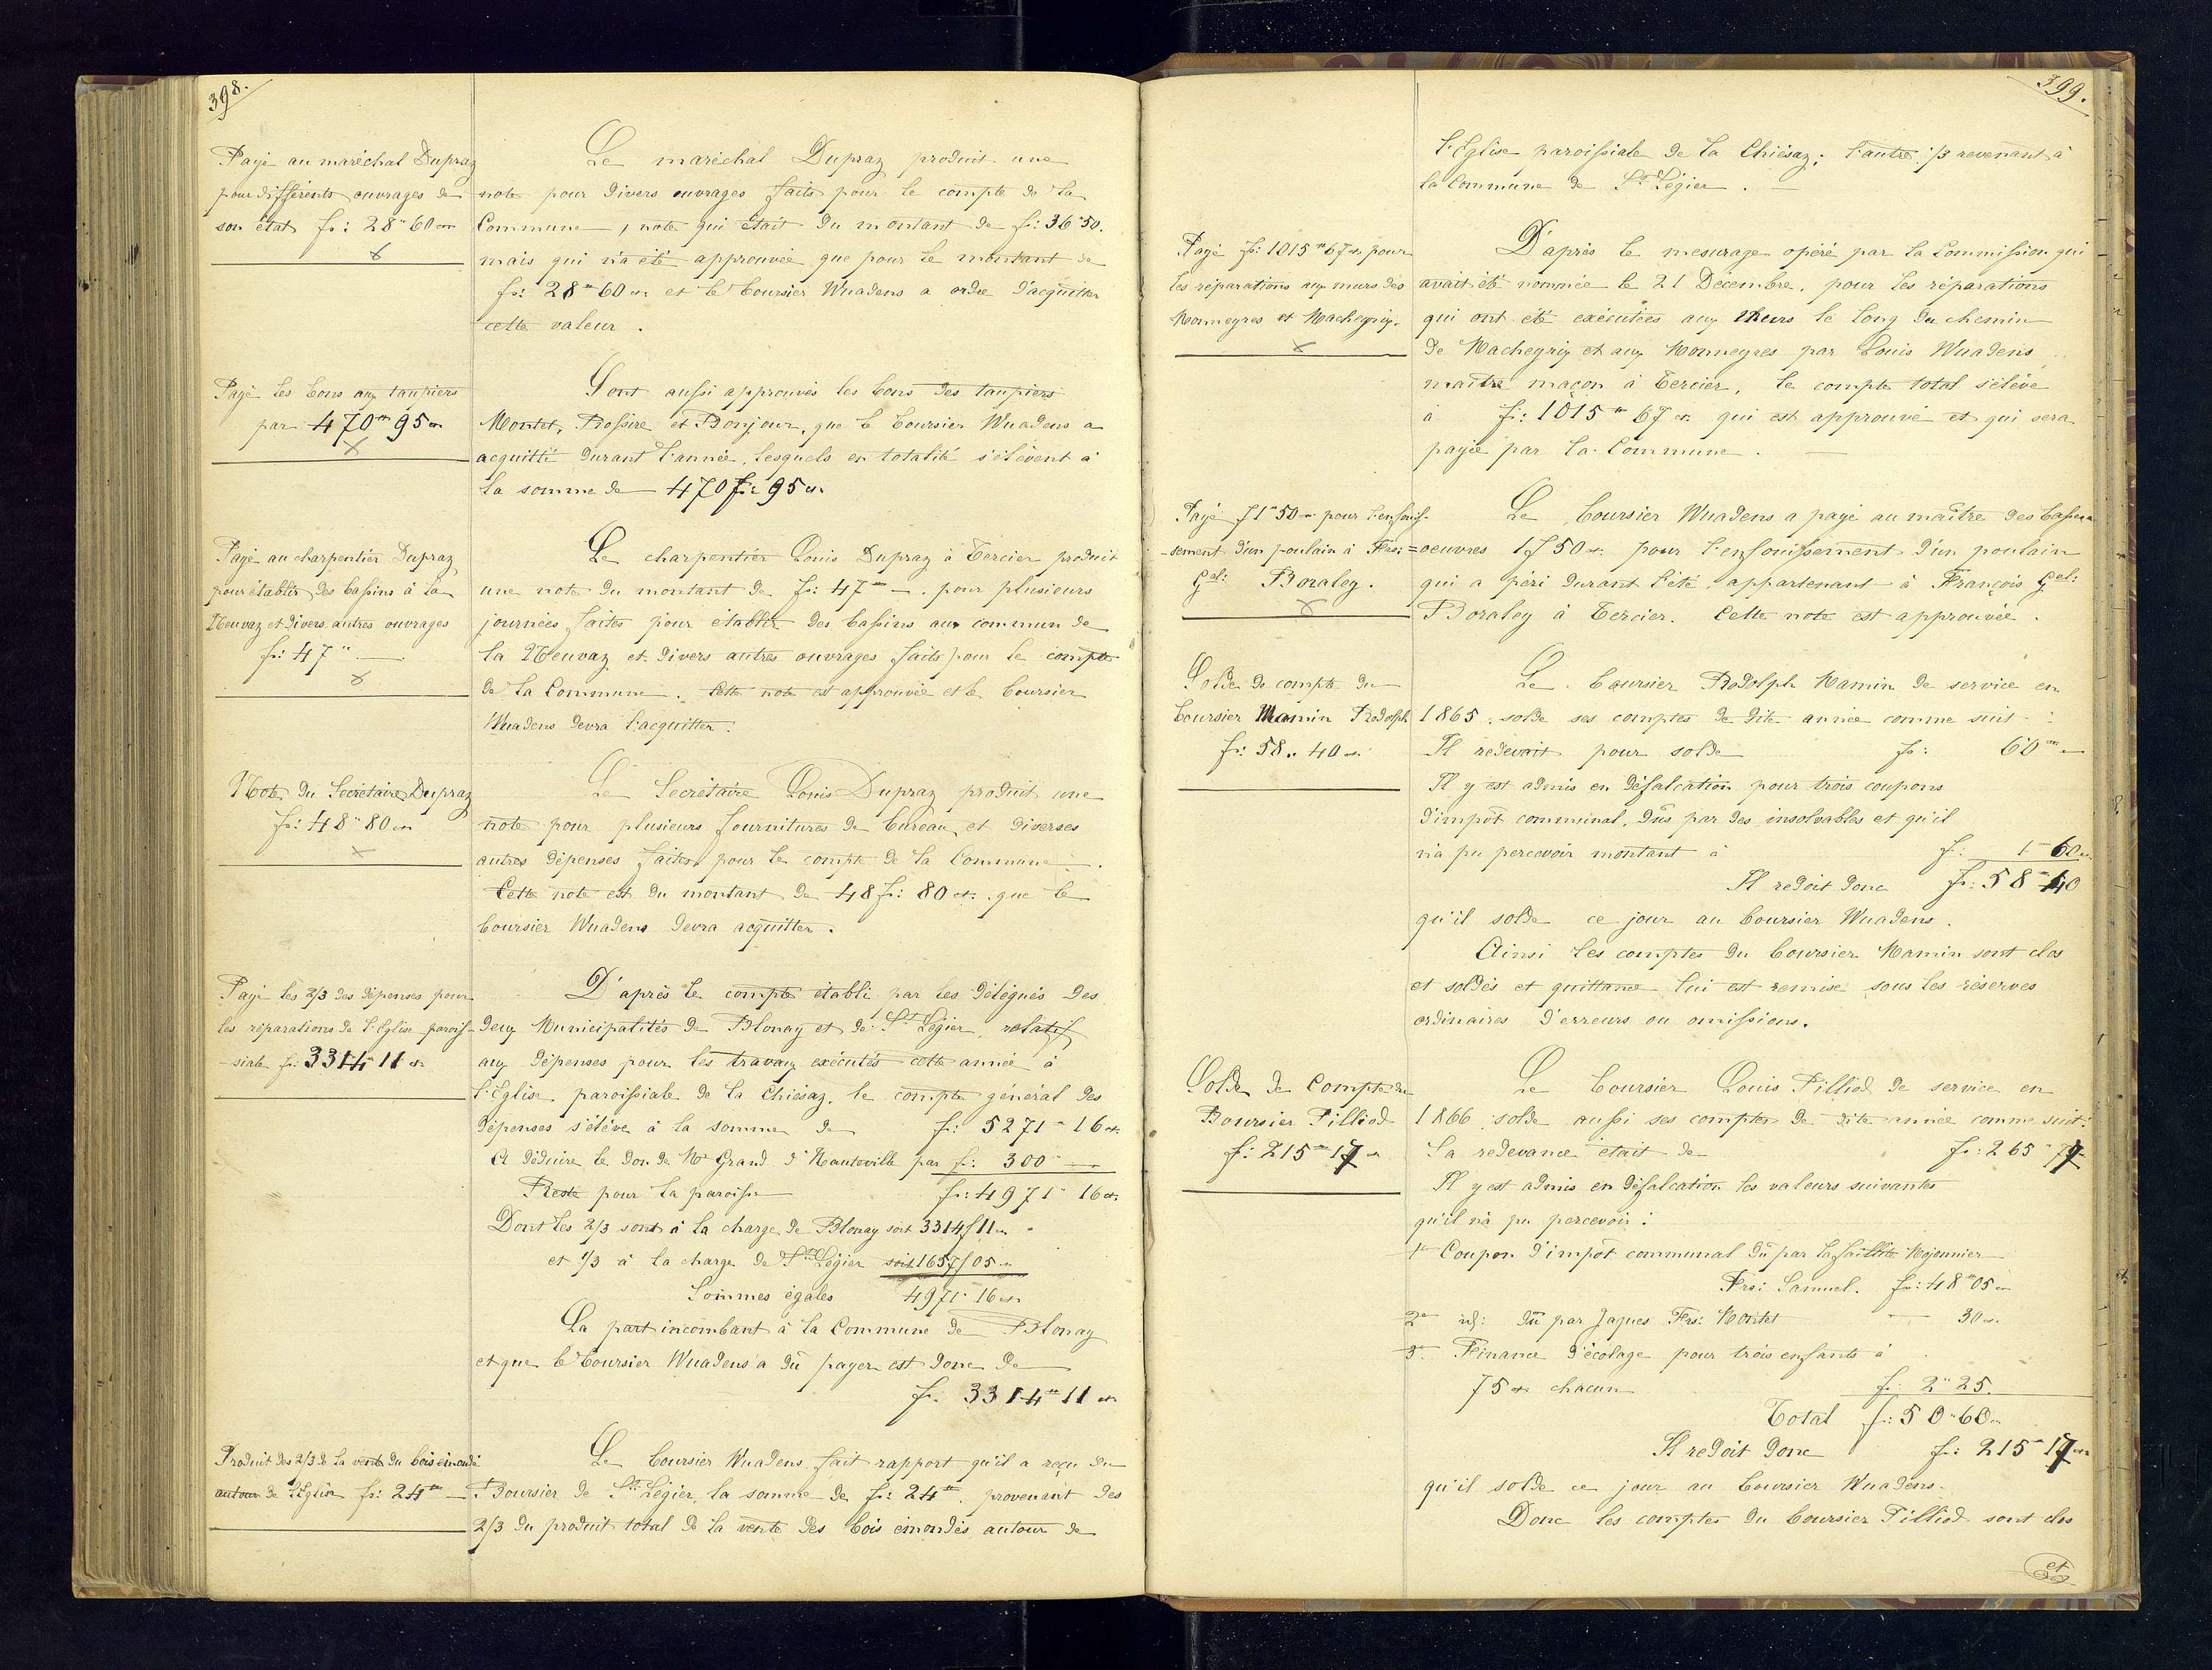 398.
Payé au maréchal Dupraz
pour différents ouvrages de
son état fr: 28" 60 cn
Le maréchal Dupraz produit une
note pour divers ouvrages faits pour le compte de la
Commune, note qui était du montant de fr: 36"50.
mais qui n'a été approuvée que pour le montant de
fr: 28" 60 cn: et le boursier Wuadens a ordre d'acquitter
cette valeur.
Payé les bons aux taupiers
par 470" 95 cn
Sont aussi approuvés les bons des taupiers
Montet, Bossire et Bonjour, que le boursier Wuadens a
acquitté durant l'année, lesquels en totalité s'élèvent à
la somme de 470 fr: 95 cn.
Payé au charpentier Dupraz
pour établir des bassins à la
Neuvaz et divers autres ouvrages
fr: 47" —
Le charpentier Louis Dupraz à Tercier produit
une note du montant de fr: 47" —. pour plusieurs
journées faites pour établir des bassins aux commun de
la Neuvaz et divers autres ouvrages faits pour le compte
de la Commune. Cette note est approuvée et le boursier
Wuadens devra l'acquitter.
Note du Secrétaire Dupraz
fr: 48" 80 cn
Le Secrétaire Louis Dupraz produit une
note pour plusieurs fournitures de bureau et diverses
autres dépenses faites pour le compte de la Commune.
Cette note est du montant de 48 fr: 80 ct: que le
boursier Wuadens devra acquitter.
Payé les 2/3 des dépenses pour
les réparations de l'Eglise parois-
-siale fr: 3314" 11 cn
D'après le compte établi par les délégués des
deux Municipalités de Blonay et de St Légier, relatif
aux dépenses pour les travaux exécutés cette année à
l'Eglise paroissiale de la Chiésaz, le compte général des
dépenses s'élève à la somme de fr: 5271" 16 ct.
A déduire le don de Mr Grand d'Hauteville par fr: 300" —
Reste pour la paroisse fr: 4971" 16 ct.
Dont les 2/3 sont à la charge de Blonay soit 3314 f 11 cn
et 1/3 à la charge de St Légier soit 1657 f 05 cn
Sommes égales 4971" 16 cn
La part incombant à la Commune de Blonay
et que le boursier Wuadens a dû payer est donc de
fr. 3314" 11 ct
Produit des 2/3 de la vente du bois émondé
autour de l'Eglise fr: 24" —
Le boursier Wuadens fait rapport qu'il a reçu du
Boursier de St Légier, la somme de fr: 24". provenant des
2/3 du produit total de la vente des bois émondés autour de
399.
l'Eglise paroissiale de la Chiésaz; l'autre 1/3 revenant à
la Commune de St Légier. —
Payé fr: 1015" 67 cn pour
les réparations aux murs des
Monneyres et Macheyrix.
D'après le mesurage opéré par la Commission qui
avait été nommée le 21 Décembre, pour les réparations
qui ont été exécutées aux Murs le long du chemin
de Macheyrix et aux Monneyres par Louis Wuadens
maître maçon à Tercier, le compte total s'élève
à fr: 1015" 67 ct. qui est approuvé et qui sera
payé par la Commune. —
Payé f 1" 50 cn pour l'enfouis-
-sement d'un poulain à Frs:
Gel: Boraley.
Le boursier Wuadens a payé au maître des basses
=oeuvres 1 f 50 ct: pour l'enfouissement d'un poulain
qui a péri durant l'été, appartenant à François Gel:
Boraley à Tercier. Cette note est approuvée.
Solde de compte du
boursier Mamin Rodolph
fr: 58.. 40 ct.
Le boursier Rodolph Mamin de service en
1865, solde ses comptes de dite année comme suit:
Il redevait pour solde fr: 60" —
Il y est admis en défalcation pour trois coupons
d'impôt communal, dûs par des insolvables et qu'il
n'a pu percevoir montant à f: 1" 60 cn
Il redoit donc fr: 58" 40
qu'il solde ce jour au boursier Wuadens.
Ainsi les comptes du boursier Mamin sont clos
et soldés et quittance lui est remise sous les réserves
ordinaires d'erreurs ou omissions.
Solde de Compte du
Boursier Pilliod
fr: 215" 17 cn
Le boursier Louis Pilliod de service en
1866 solde aussi ses comptes de dite année comme suit:
Sa redevance était de fr: 265" 77
Il y est admis en défalcation les valeurs suivantes
qu'il n'a pu percevoir:
1° Coupon d'impôt communal dû par la faillite Mojonnier
Frs: Samuel. fr: 48" 05 cn
2° id: dû par Jaques Frs: Montet — 30 cn.
3° Finance d'écolage pour trois enfants à
75 ct chacun f: 2" 25.
Total f: 50" 60 cn
Il redoit donc fr: 215" 17 cn
qu'il solde ce jour au boursier Wuadens.
Donc les comptes du boursier Pilliod sont clos
et